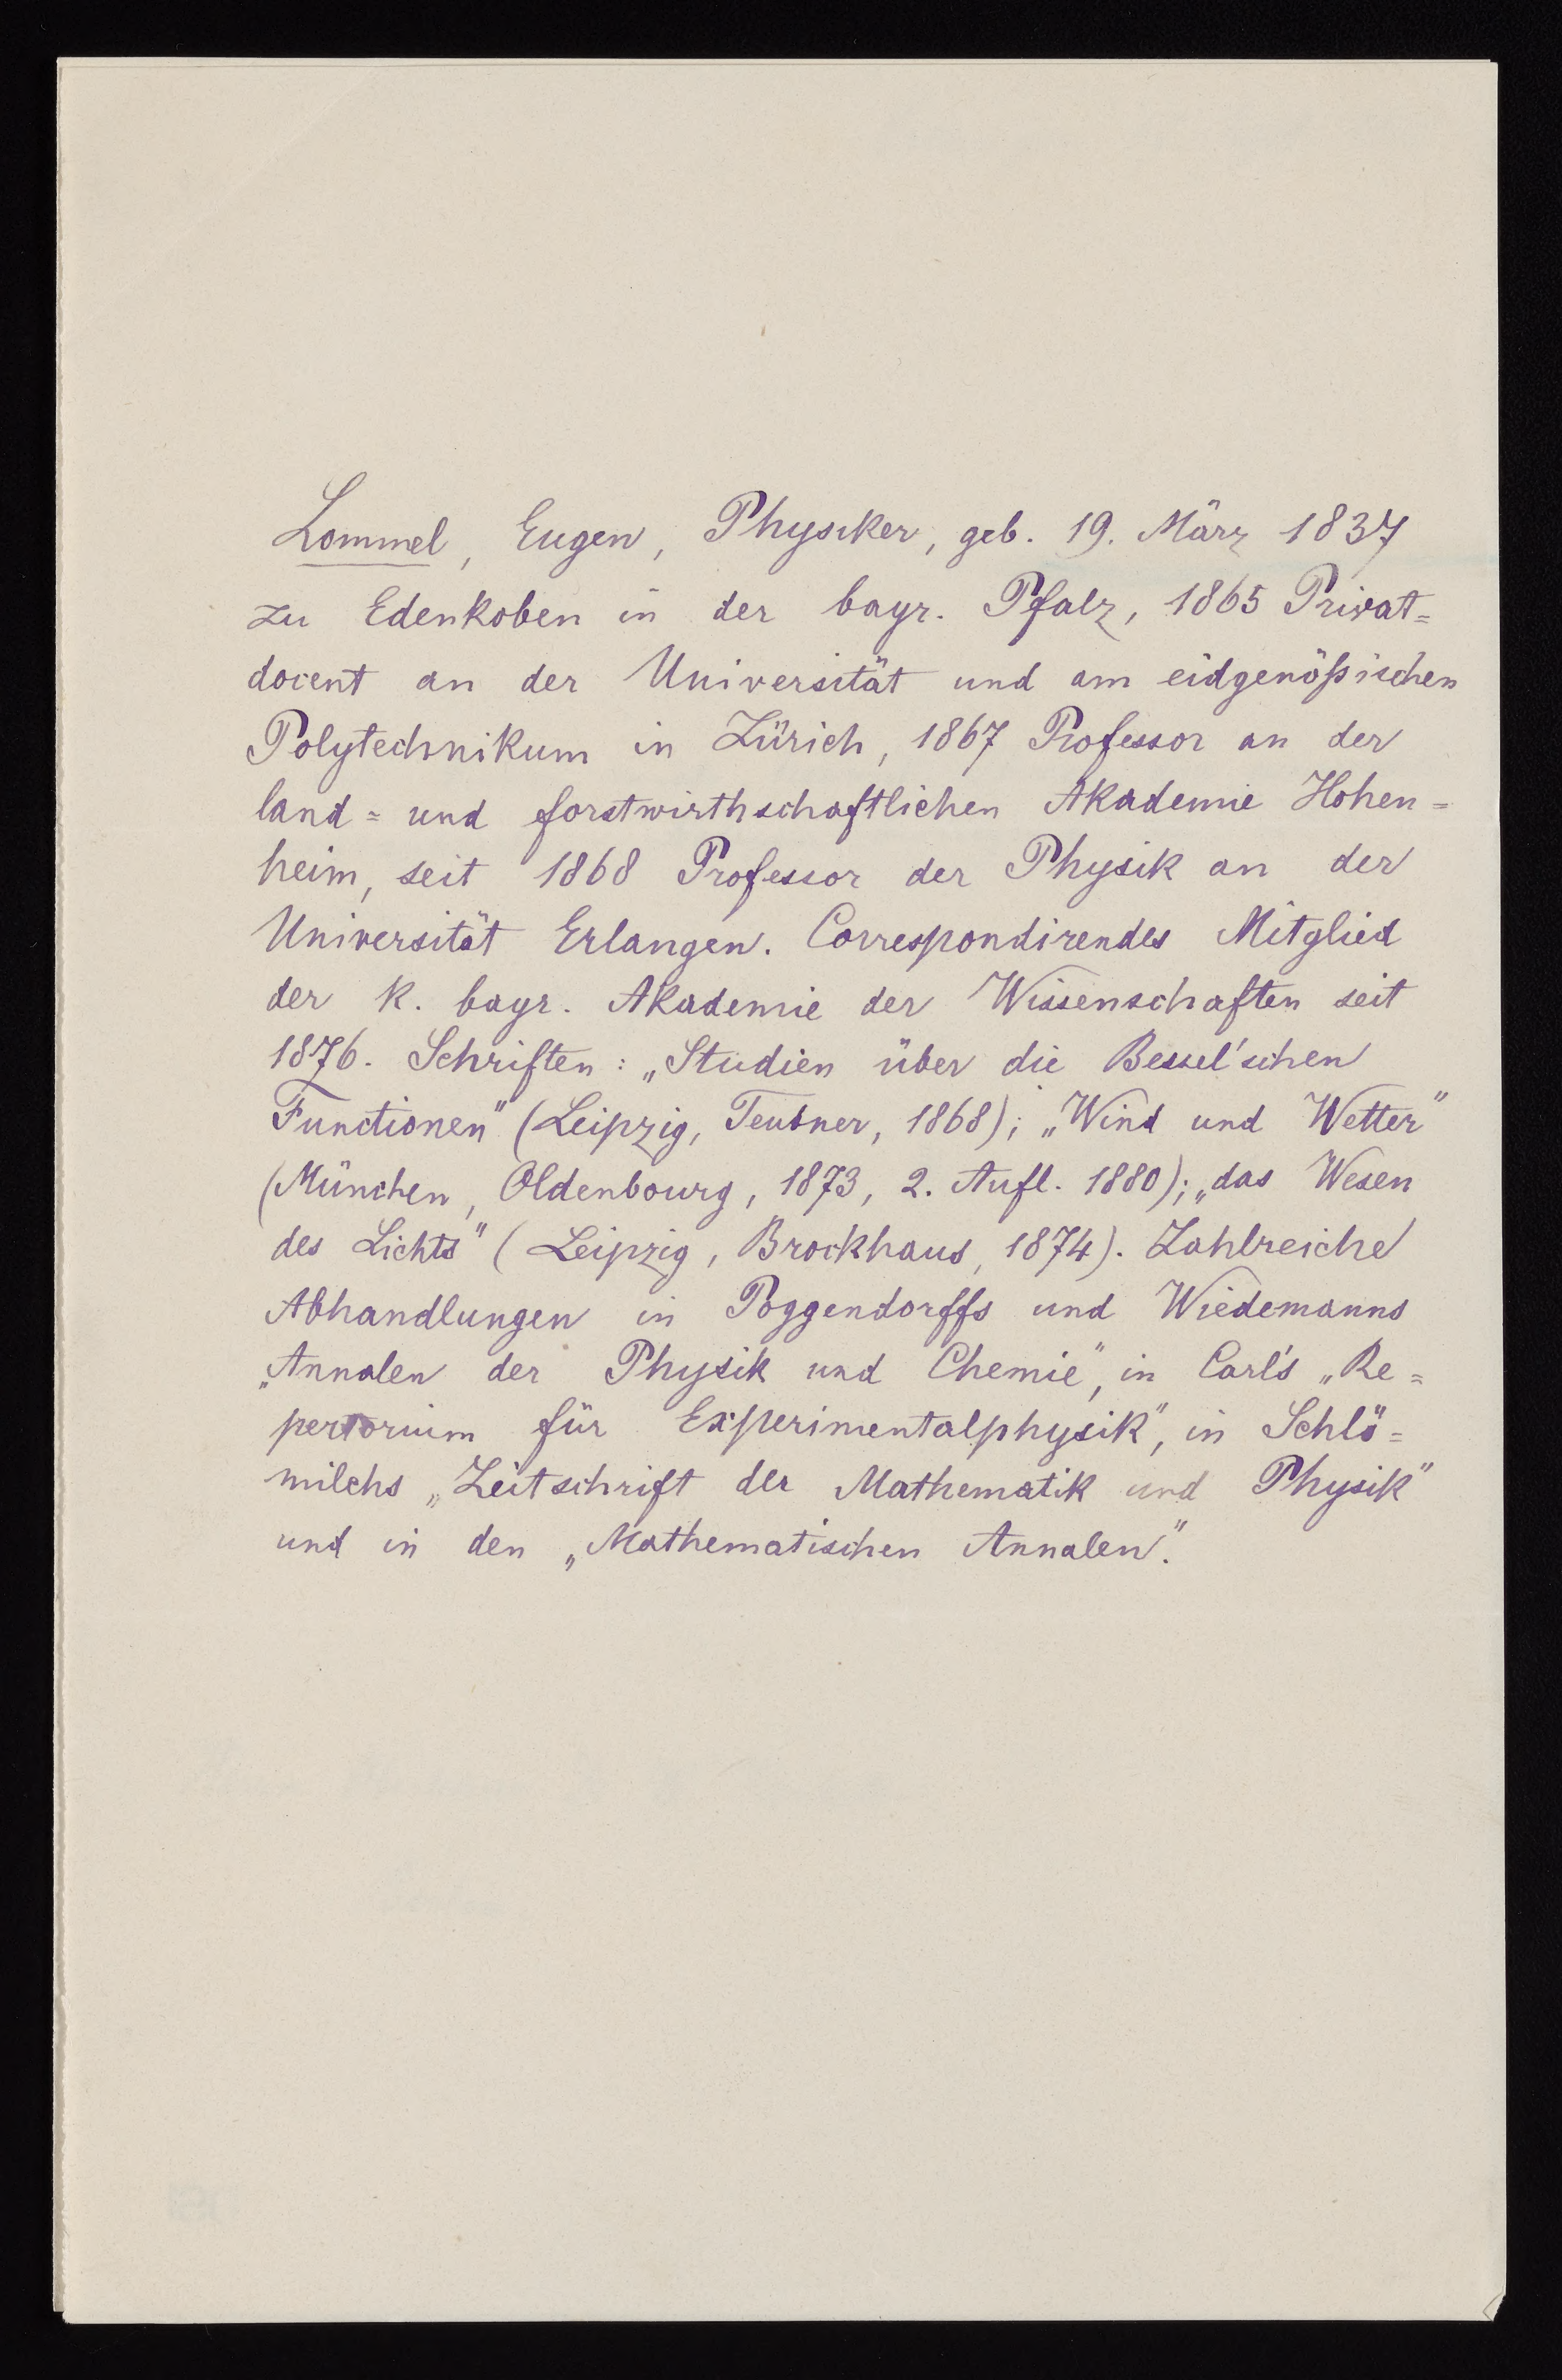 Lommel, Eugen, Physiker, geb. 19. März 1837
zu Edenkoben in der bayr. Pfalz, 1865 Privat=
docent an der Universität und am eidgenößischen
Polytechnikum in Zürich, 1867 Professor an der
land= und forstwirthschaftlichen Akademie Hohen=
heim, seit 1868 Professor der Physik an der
Universität Erlangen. Correspondirendes Mitglied
der k. bayr. Akademie der Wissenschaften seit
1876. Schriften: „Studien über die Bessel'schen
Functionen" (Leipzig, Teubner, 1868); „Wind und Wetter"
(München, Oldenbourg, 1873, 2. Aufl. 1880); „das Wesen
des Lichts" (Leipzig, Brockhaus, 1874). Zahlreiche
Abhandlungen in Poggendorffs und Wiedemanns
„Annalen der Physik und Chemie", in Carl's „Re=
pertorium für Experimentalphysik", in Schlö=
milchs „Zeitschrift der Mathematik und Physik"
und in den „Mathematischen Annalen".